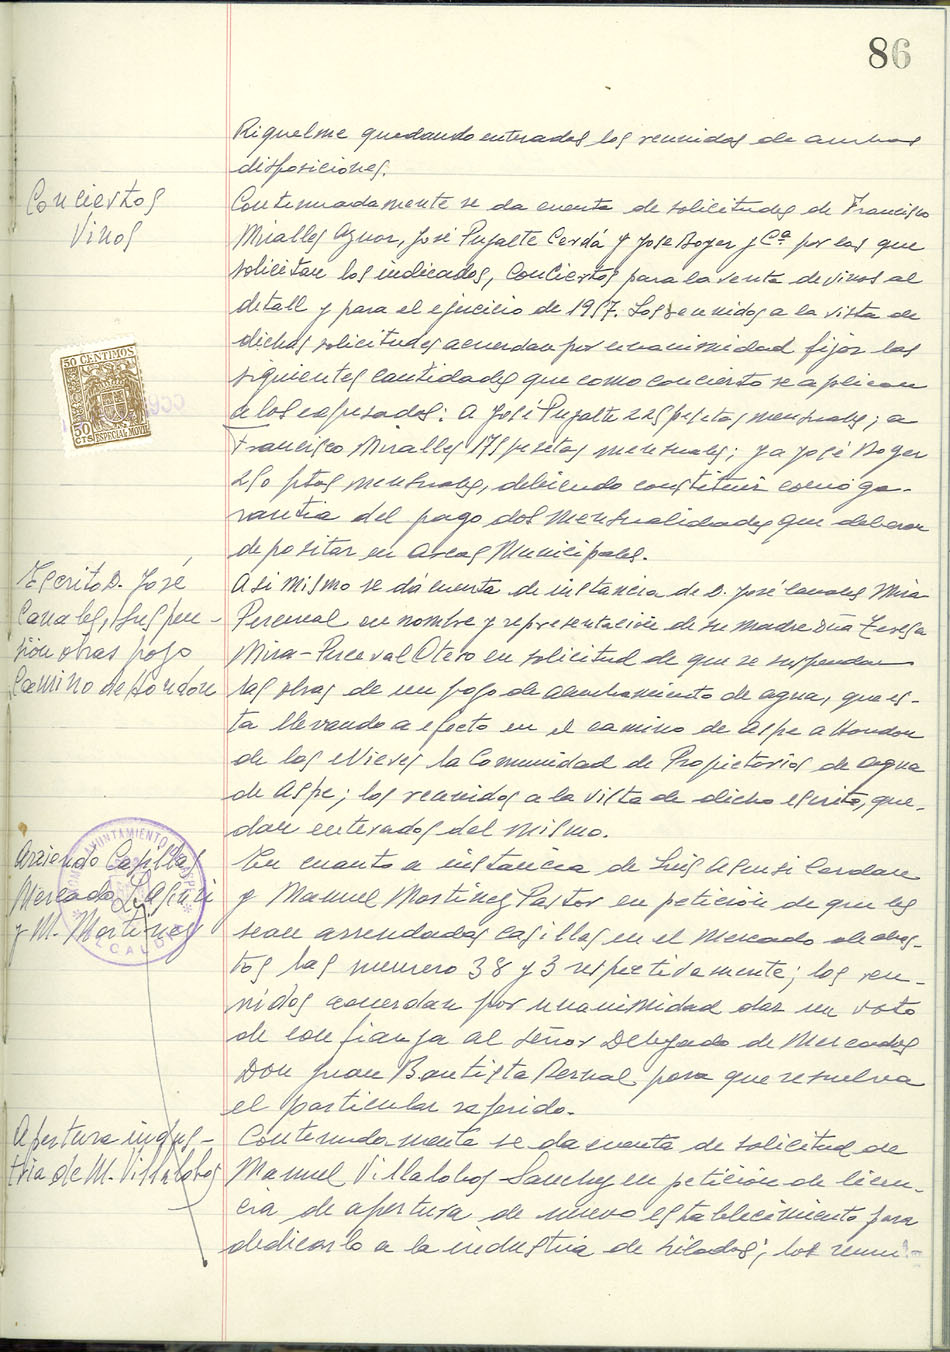 86
Riquelme quedando enterados los reunidos de ambas
disposiciones.
Conciertos
Vinos
Continuadamente se da cuenta de solicitudes de Francisco
Miralles Aznar, José Pujalte Cerdá y José Boyer y Cª por las que
solicitan los indicados, Conciertos para la venta de vinos al
detall y para el ejercicio de 1957. Los reunidos a la vista de
dichas solicitudes acuerdan por unanimidad fijar las
siguientes cantidades que como concierto se aplican
a los expresados: A José Pujalte 225 pesetas mensuales; a
Francisco Miralles 175 pesetas mensuales; y a José Boyer
250 ptas mensuales, debiendo constituir como ga-
rantia del pago dos mensualidades que deberan
depositar en Arcas Municipales.
50 CENTIMOS
50
CTS ESPECIAL MOVIL
Escrito D. José
Canales, suspen-
sión obras pozo
Camino de Hondón
Asi mismo se dá cuenta de instancia de D. José Canales Mira
Perceval en nombre y representación de su madre Dña Teresa
Mira-Perceval Otero en solicitud de que se suspendan
las obras de un pozo de alumbramiento de agua, que es-
ta llevando a efecto en el camino de Aspe a Hondon
de las Nieves la Comunidad de Propietarios de agua
de Aspe; los reunidos a la vista de dicho escrito, que-
dan enterados del mismo.
Arriendo Casillas
Mercado L. Asensi
y M. Martinez
AYUNTAMIENTO
ALCALDIA
En cuanto a instancia de Luis Asensi Cerdan
y Manuel Martinez Pastor en petición de que les
sean arrendadas casillas en el Mercado de abas-
tos las numero 38 y 3 respectivamente; los reu-
nidos acuerdan por unanimidad dar un voto
de confianza al señor Delegado de Mercados
Don Juan Bautista Bernal para que resuelva
el particular referido.
Apertura indus-
tria de M. Villalobos
Continuadamente se da cuenta de solicitud de
Manuel Villalobos Sanchez en petición de licen-
cia de apertura de nuevo establecimiento para
dedicarlo a la industria de helados; los reuni-